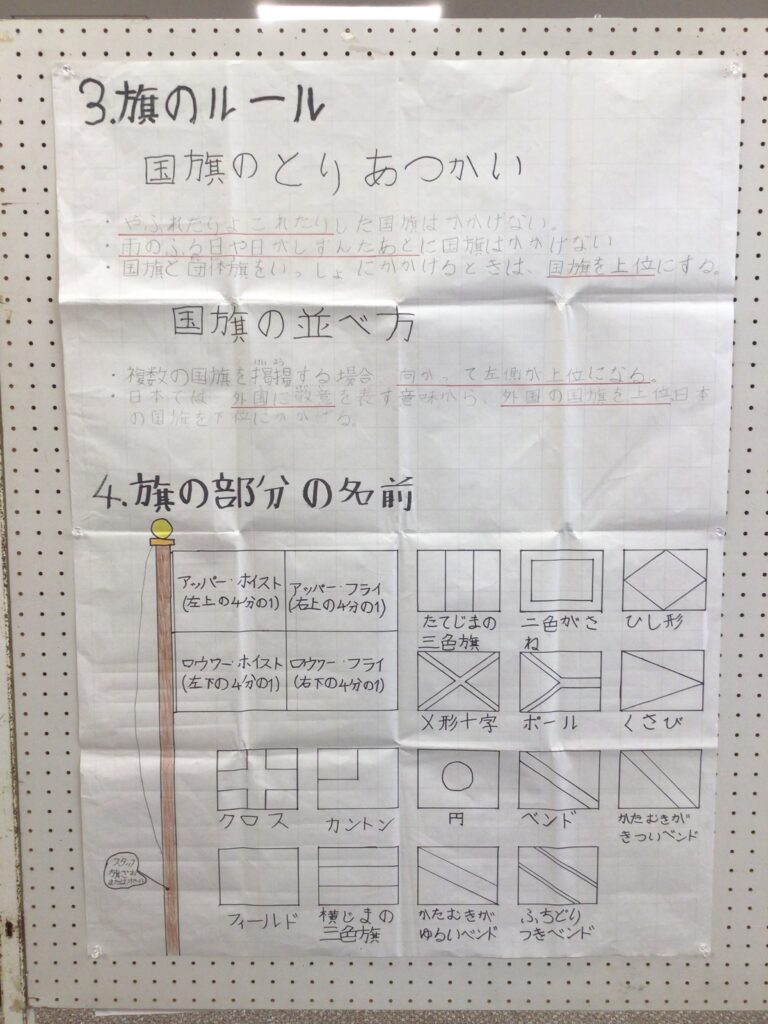 3.旗のルール
国旗のとりあつかい
・やぶれたりよごれたりした国旗はかかげない。
・雨のふる日や日がしずんだあとに国旗はかかげない
・国旗と団体旗をいっしょにかかげるときは、国旗を上位にする。
国旗の並べ方
けい よう
・複数の国旗を掲揚する場合 向かって左側が上位になる。
・日本では 外国に敬意を表す意味から、外国の国旗を上位、日本
の国旗を下位にかかげる。
4.旗の部分の名前
アッパー・ホイスト
(左上の4分の1)
アッパー・フライ
(右上の4分の1)
ロウワー・ホイスト
(左下の4分の1)
ロウワー・フライ
(右下の4分の1)
たてじまの
三色旗
二色がさ
ね
ひし形
X形十字
ポール
くさび
クロス
カントン
円
ベンド
かたむきが
きついベンド
スタッフ
旗ざお
またはポール
フィールド
横じまの
三色旗
かたむきが
ゆるいベンド
ふちどり
つきベンド